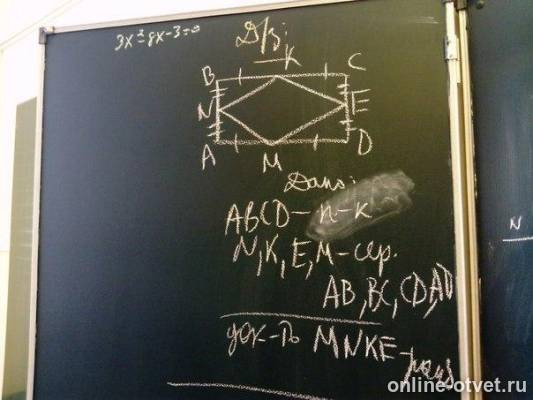 3x²-8x-3=0
Д/з:
K
B C
N E
A D
M
Дано:
ABCD - п-к
N, K, E, M - сер.
AB, BC, CD, AD
док-ть MNKE - ромб
N
online-otvet.ru